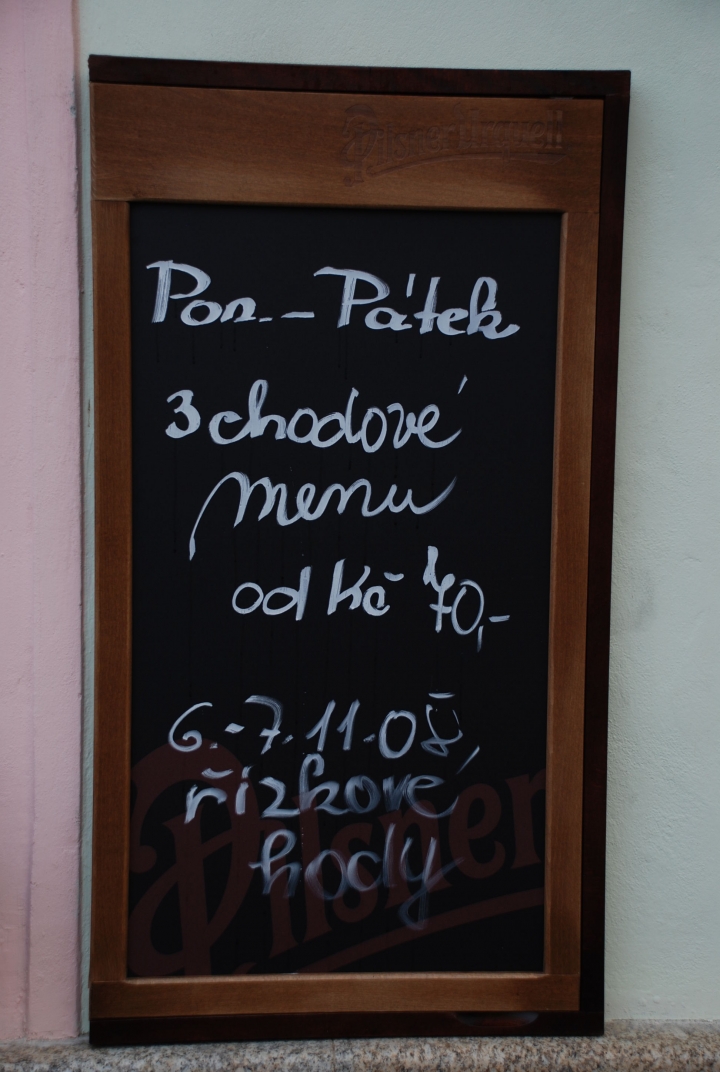 Pilsner Urquell
Pon. - Pátek
3 chodové
menu
od Kč 70,-
6.-7.11.08
řízkové
hody
Pilsner